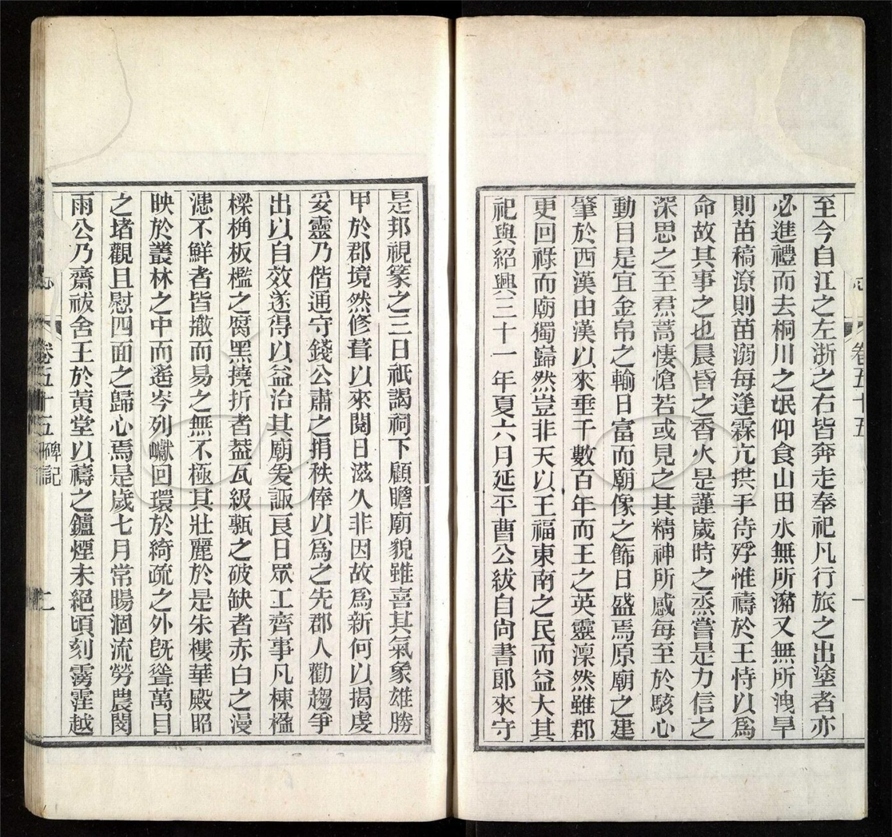 至今自江之左浙之右皆奔走奉祀凡行旅之出塗者亦
必進禮而去桐川之氓仰食山田水無所瀦又無所洩旱
則苗稿潦則苗溺每逢霖亢拱手待殍惟禱於王恃以爲
命故其事之也晨昏之香火是謹歲時之烝嘗是力信之
深思之至焄蒿悽愴若或見之其精神所感每至於駭心
動目是宜金帛之輸日富而廟像之飾日盛焉原廟之建
肇於西漢由漢以來垂千數百年而王之英靈凜然雖郡
更回祿而廟獨歸然豈非天以王福東南之民而益大其
祀與紹興三十一年夏六月延平曹公紱自尚書郎來守
卷五十五
一
是邦視篆之三日祇謁祠下顧瞻廟貌雖喜其氣象雄勝
甲於郡境然修葺以來閱日滋久非因故爲新何以揭虔
妥靈乃偕通守錢公肅之捐秩俸以爲之先郡人勸趨爭
出以自效遂得以益治其廟爰諏良日眾工齊事凡棟楹
樑桷板檻之腐黑撓折者蓋瓦級甎之破缺者赤白之漫
漶不鮮者皆撤而易之無不極其壯麗於是朱樓華殿昭
映於叢林之中而遙岑列巘回環於綺疏之外旣聳萬目
之堵觀且慰四面之歸心焉是歲七月常暘涸流勞農閔
雨公乃齋祓舍王於黃堂以禱之鑪煙未絕頃刻雱霪越
卷五十五 碑記
二